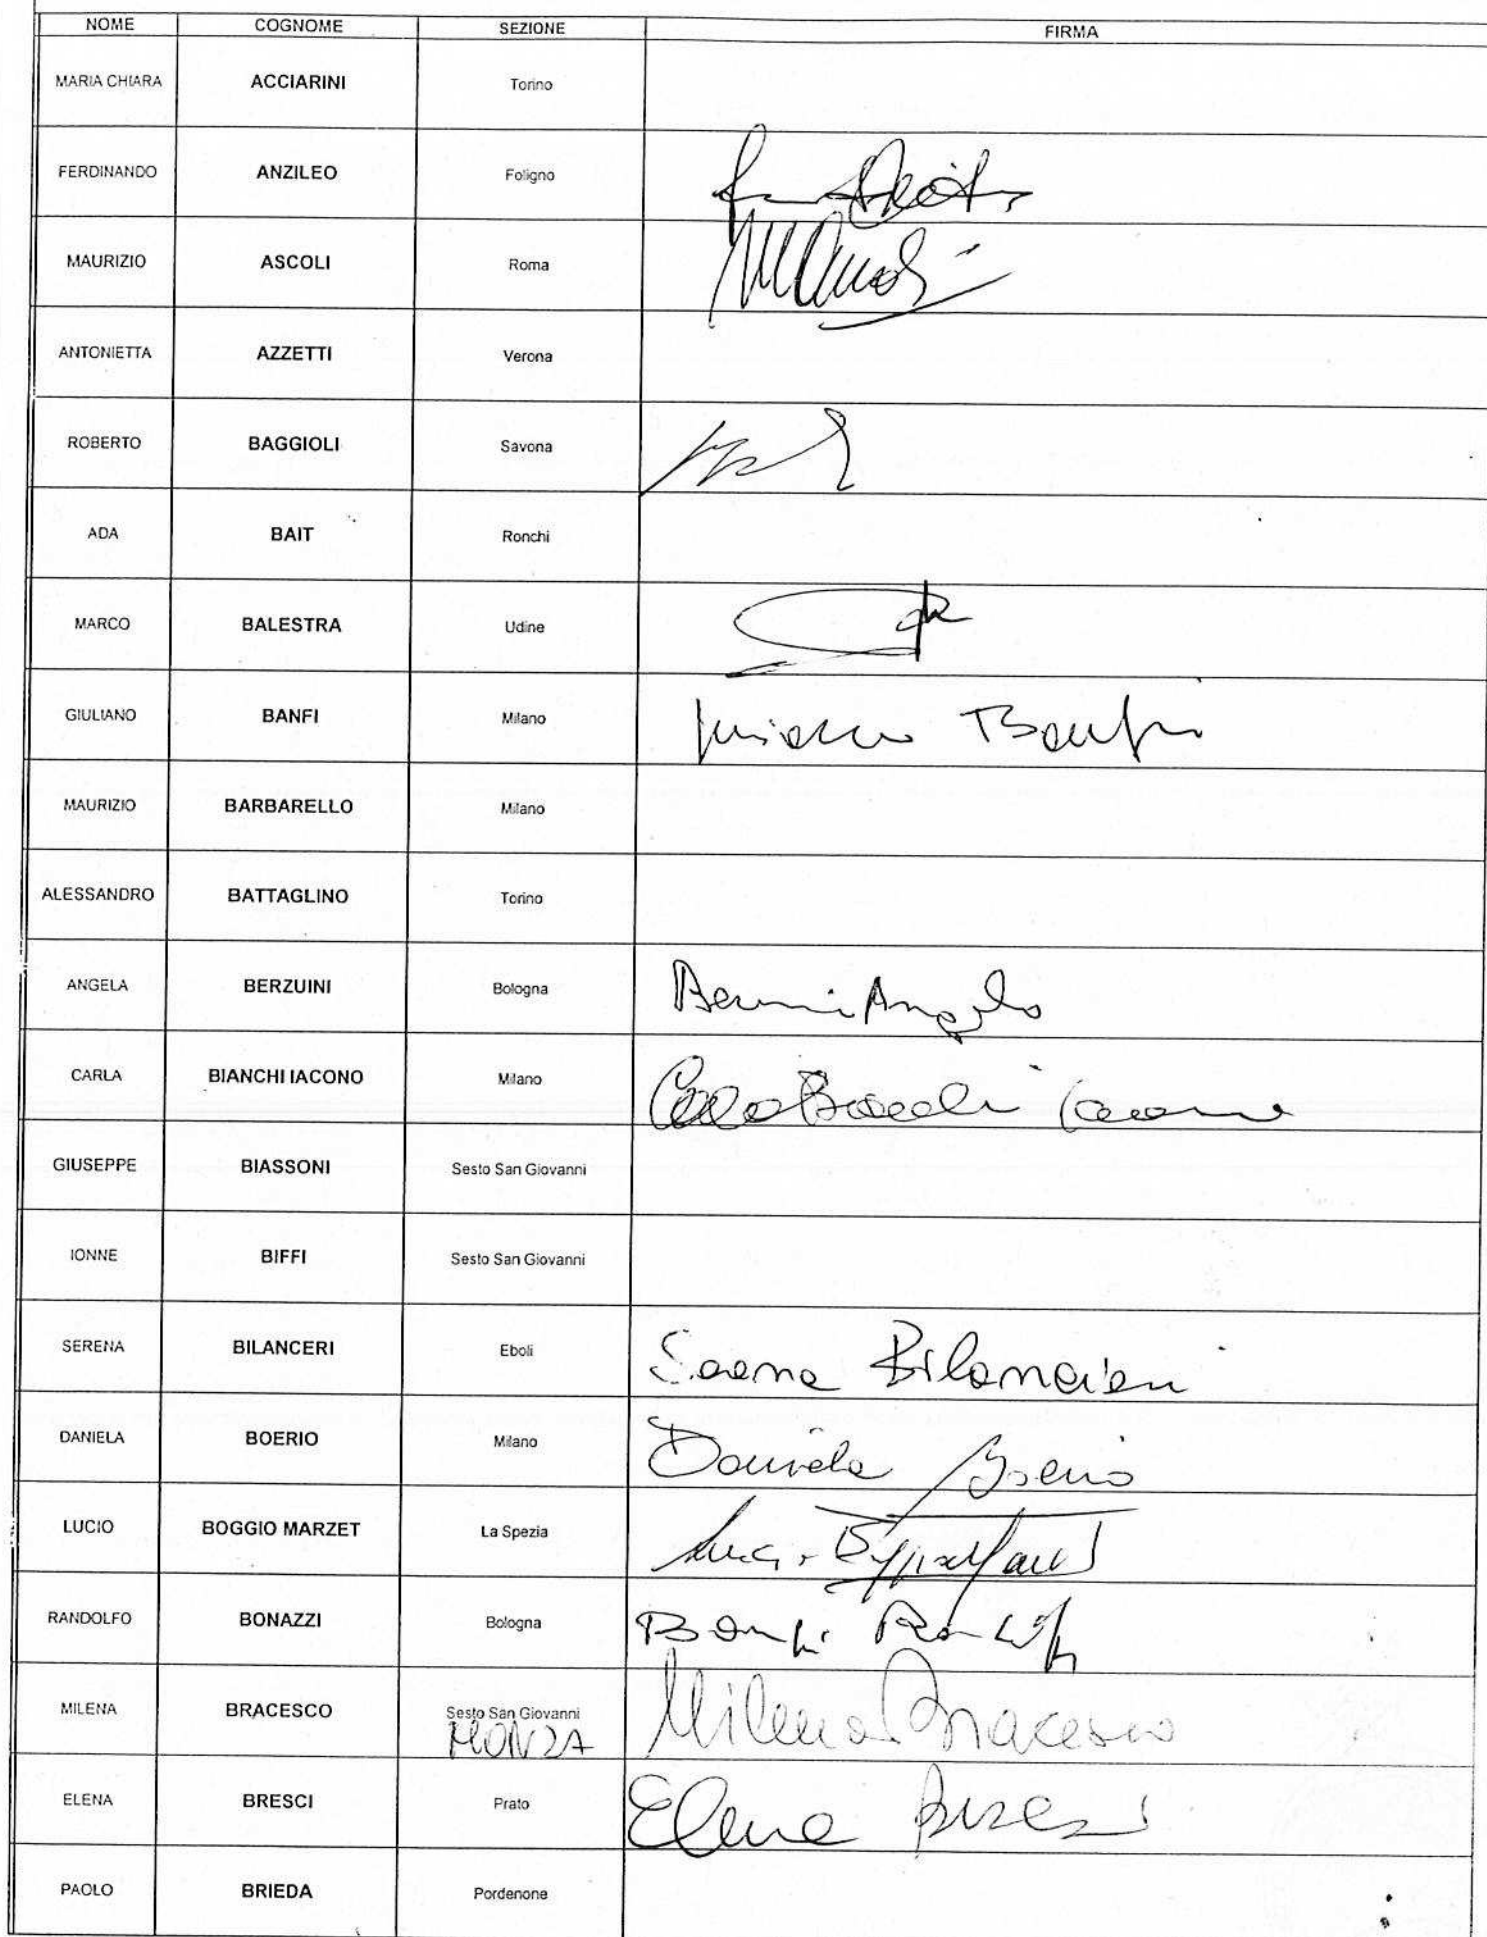 NOME COGNOME SEZIONE FIRMA
MARIA CHIARA ACCIARINI Torino
FERDINANDO ANZILEO Foligno
MAURIZIO ASCOLI Roma
ANTONIETTA AZZETTI Verona
ROBERTO BAGGIOLI Savona
ADA BAIT Ronchi
MARCO BALESTRA Udine
GIULIANO BANFI Milano Giuliano Banfi
MAURIZIO BARBARELLO Milano
ALESSANDRO BATTAGLINO Torino
ANGELA BERZUINI Bologna Angela
CARLA BIANCHI IACONO Milano Carla Bianchi Iacono
GIUSEPPE BIASSONI Sesto San Giovanni
IONNE BIFFI Sesto San Giovanni
SERENA BILANCERI Eboli Serena Bilancieri
DANIELA BOERIO Milano Daniela Boerio
LUCIO BOGGIO MARZET La Spezia
RANDOLFO BONAZZI Bologna
MILENA BRACESCO Sesto San Giovanni Milena Bracesco
MONZA
ELENA BRESCI Prato Elena Bresci
PAOLO BRIEDA Pordenone